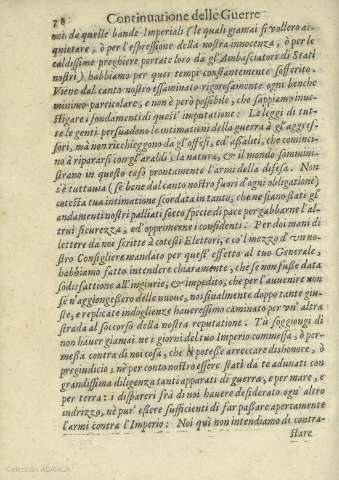 78 Continuatione delle Guerre
noi da quelle bande Imperiali (le quali giamai si vollero ac-
quietare, ò per l'espressione della nostra innocenza, ò per le
caldissime preghiere portate loro da gl'Ambasciatori di Stati
nostri) habbiamo per quei tempi constantemente sofferito.
Viene dal canto nostro essaminato rigorosamente ogni benche
minimo particolare, e non è però possibile, che sappiamo inue-
stigare i fondamenti di quest' imputatione. Le leggi di tut-
te le genti persuadono le intimationi della guerra à gl'aggres-
sori, mà non richieggono da gl'offesi, ed assaliti, che comincin-
o à ripararsi con gl'araldi; la natura, & il mondo sommini-
strano in questo caso prontamente l'armi della difesa. Non
s'è tuttauia (se bene dal canto nostro fuori d'ogni obligatione)
cotesta tua intimatione scordata in tanto, che ne siano stati gl'
andamenti nostri palliati sotto spezie di pace per gabbarne l'al-
trui sicurezza, od opprimerne i confidenti. Per doi mani di
lettere da noi scritte à cotesti Elettori, e co'l mezzo d'vn no-
stro Consigliere mandato per quest' effetto al tuo Generale,
habbiamo fatto intendere chiaramente, che se non fusse data
sodisfattione all'ingiurie, & impedito, che per l'auuenire non
se n'aggiongessero delle nuoue, noi finalmente doppo tante giu-
ste, e replicate indoglienze haueressimo caminato per vn' altra
strada al soccorso della nostra reputatione. Tù soggiongi di
non hauer giamai ne i giorni del tuo Imperio commessa, ò per-
messa contra di noi cosa, che potesse arreccare dishonore, ò
pregiudicio, nè per conto nostro essere stati da te adunati con
grandissima diligenza tanti apparati di guerra, e per mare, e
per terra: i dispareri frà di noi hauere desiderato ogn' altro
indrizzo, nè pur' essere sufficienti di far passare apertamente
l'armi contra l'Imperio: Noi quì non intendiamo di contra-
stare
Colección ABANCA